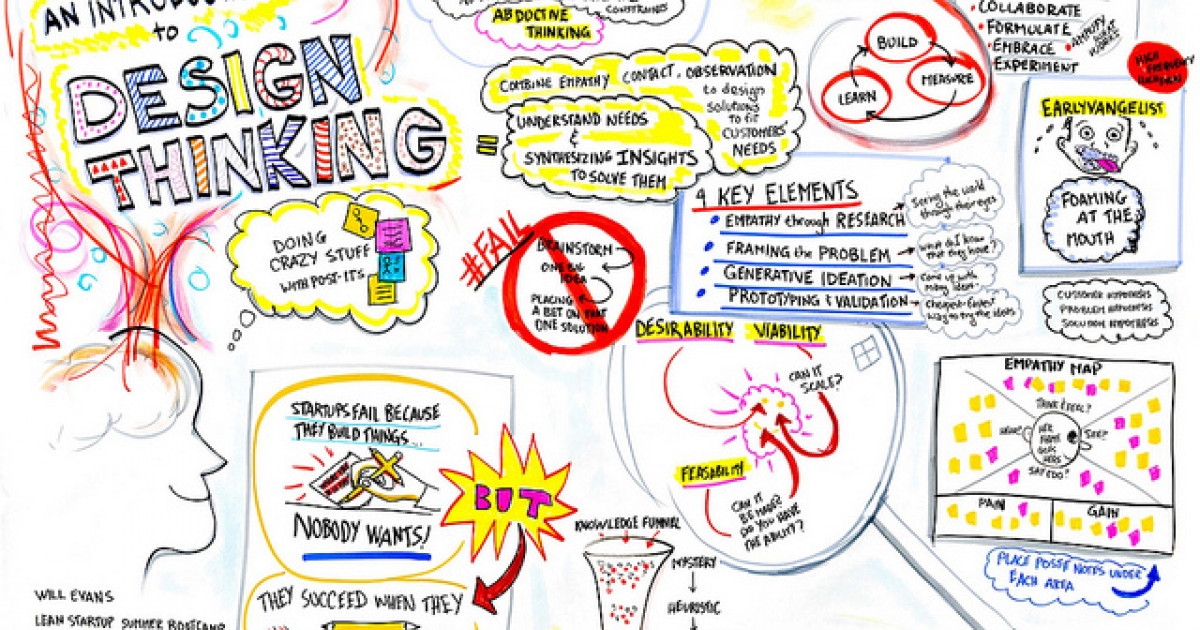 AN
to
DESIGN
THINKING
DOING
CRAZY STUFF
WITH POST-ITS
WILL EVANS
LEAN STARTUP SUMMER BOOTCAMP
ABDUCTIVE
THINKING
CONSTRAINTS
=
COMBINE EMPATHY, CONTACT, OBSERVATION
to design
solutions
to fit
CUSTOMERS'
NEEDS
UNDERSTAND NEEDS
&
SYNTHESIZING INSIGHTS
TO SOLVE THEM
#FAIL
BRAINSTORM
ONE BIG
IDEA
PLACING
A BET ON THAT
ONE SOLUTION
BUILD
MEASURE
LEARN
• COLLABORATE
• FORMULATE
• EMBRACE
• EXPERIMENT
EARLYVANGELIST
FOAMING
AT THE
MOUTH
4 KEY ELEMENTS
• EMPATHY through RESEARCH
Seeing the world
through their eyes
• FRAMING the PROBLEM
What do I know
that they have?
• GENERATIVE IDEATION
Come up with
many ideas
• PROTOTYPING & VALIDATION
Cheapest-Easiest
way to try the ideas
CUSTOMER HYPOTHESIS
PROBLEM HYPOTHESIS
SOLUTION HYPOTHESIS
DESIRABILITY VIABILITY
CAN IT
SCALE?
FEASABILITY
CAN IT
BE MADE?
DO YOU HAVE
THE ABILITY?
STARTUPS FAIL BECAUSE
THEY BUILD THINGS...
NOBODY WANTS!
BUT
THEY SUCCEED WHEN THEY
KNOWLEDGE FUNNEL
MYSTERY
HEURISTIC
EMPATHY MAP
THINK & FEEL?
HEAR?
SEE?
SAY & DO?
PAIN
GAIN
PLACE POSSE NOTES UNDER
EACH AREA